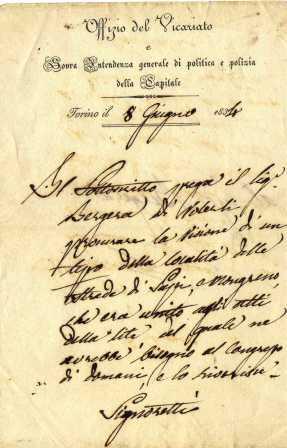 Uffizio del Vicariato
e
Sovra Intendenza generale di politica e polizia
della Capitale
Torino il 8 Giugno 1834
Il Sottoscritto prega il Sig.
Bergera di volerli
procurare la visione di un
tipo della località delle
strade di Sassi, e Mongreno,
che era unito agli atti
della lite, al quale ne
avrebbe bisogno al Congresso
di domani, e lo riverisce
Signoretti